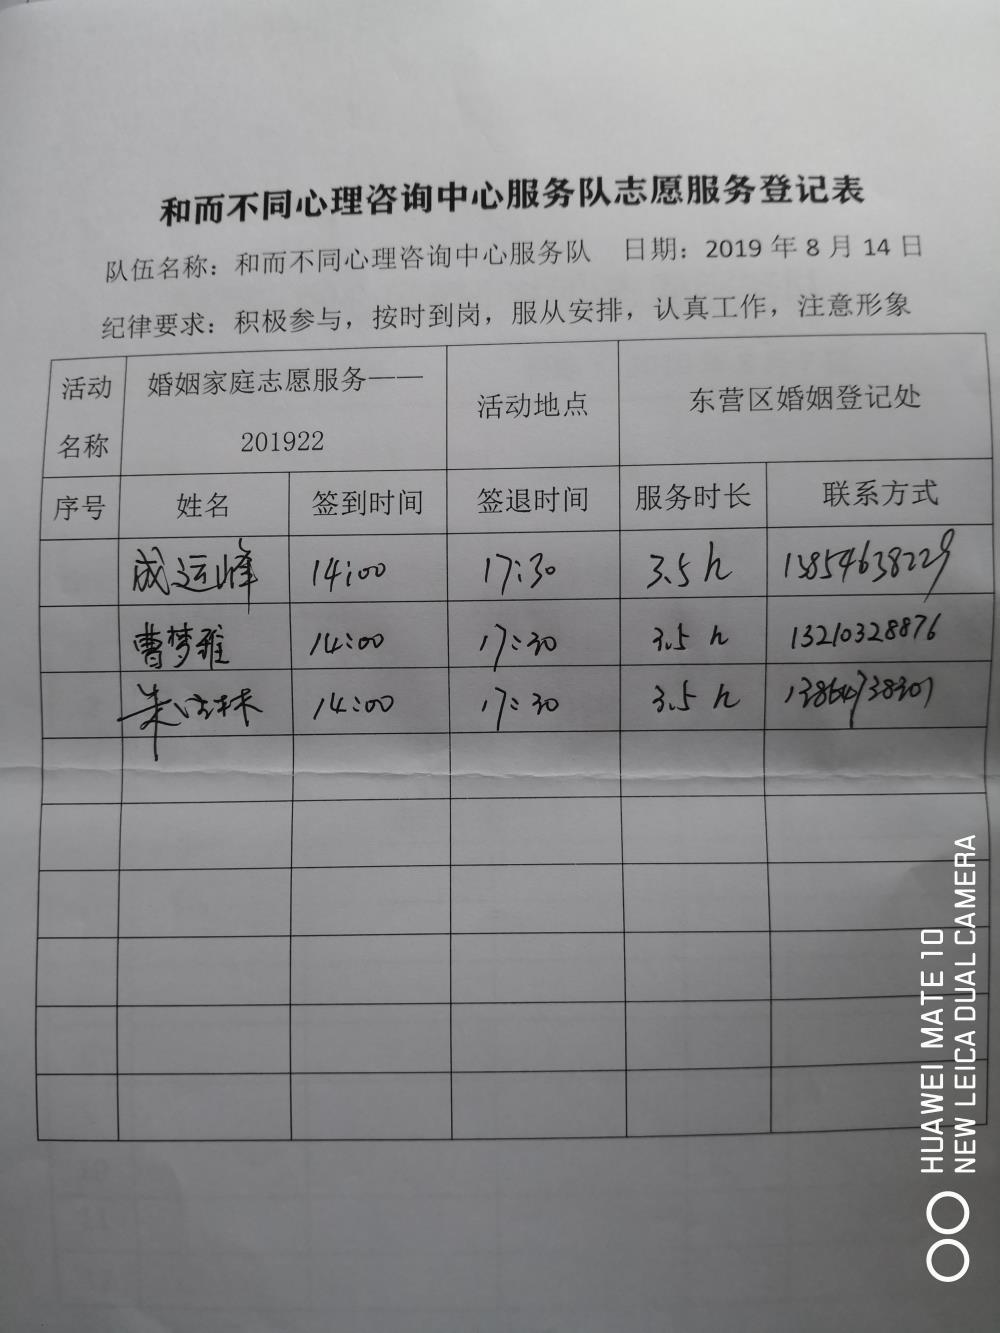 和而不同心理咨询中心服务队志愿服务登记表
队伍名称：和而不同心理咨询中心服务队 日期：2019 年 8 月 14 日
纪律要求：积极参与，按时到岗，服从安排，认真工作，注意形象
活动名称 婚姻家庭志愿服务——201922 活动地点 东营区婚姻登记处
序号 姓名 签到时间 签退时间 服务时长 联系方式
成运峰 14:00 17:30 3.5 h 13854638229
曹梦雅 14:00 17:30 3.5 h 13210328876
朱 林 14:00 17:30 3.5 h
HUAWEI MATE 10
NEW LEICA DUAL CAMERA